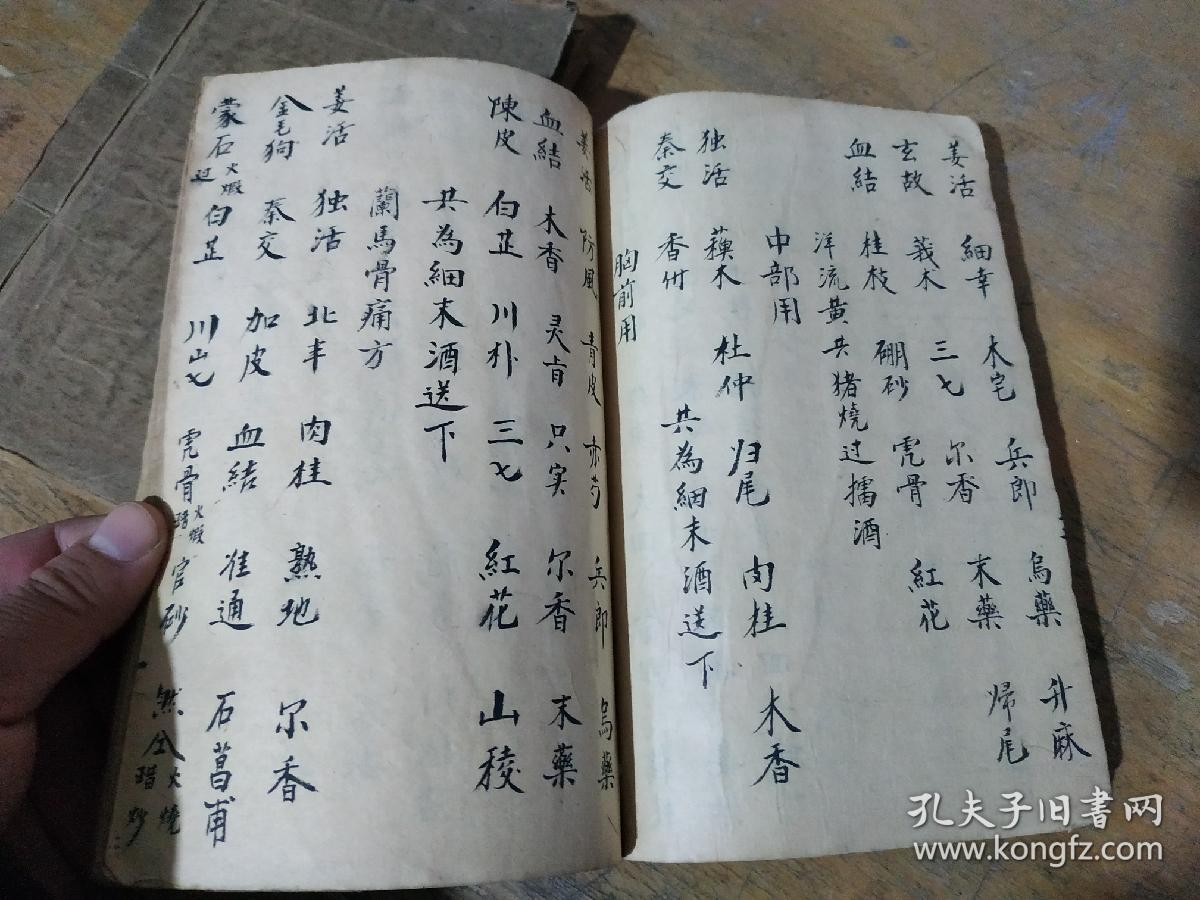 姜活 細辛 木宅 兵郎 烏藥 升麻
玄故 莪木 三七 尔香 末藥 歸尾
血結 桂枝 硼砂 虎骨 紅花
洋流黄共猪燒过擂酒
中部用
独活 蘓木 杜仲 归尾 肉桂 木香
秦交 香付 共為細末酒送下
胸前用
姜活 防風 青皮 赤芍 兵郎 烏藥
血結 木香 灵肯 只实 尔香 末藥
陳皮 白芷 川朴 三七 紅花 山稜
共為細末酒送下
蘭馬骨痛方
姜活 独活 北丰 肉桂 熟地 尔香
金毛狗 秦交 加皮 血結 准通 石菖甫
蒙石火煅过 白芷 川山七 虎骨火煅醋 官砂 然仝火燒醋炒
孔夫子旧书网
www.kongfz.com